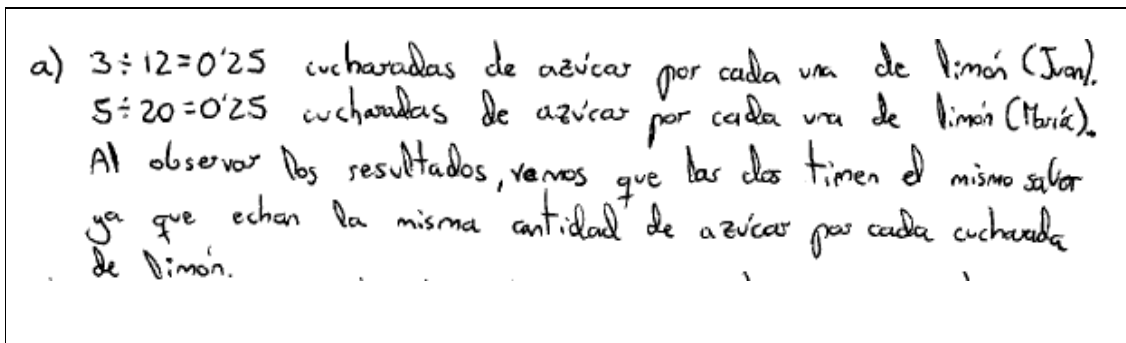 a) 3÷12=0'25 cucharadas de azúcar por cada una de limón (Juan).
5÷20=0'25 cucharadas de azúcar por cada una de limón (María).
Al observar los resultados, vemos que las dos tienen el mismo sabor
ya que echan la misma cantidad de azúcar por cada cucharada
de limón.